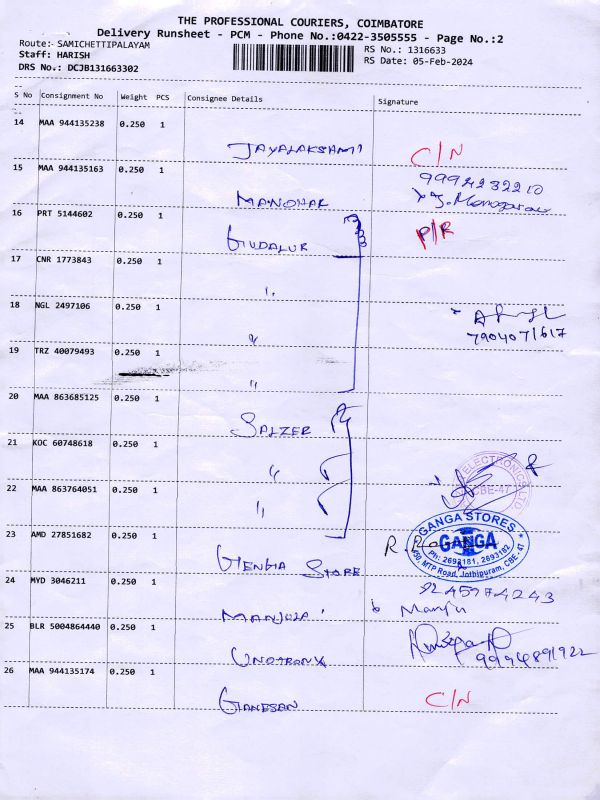 THE PROFESSIONAL COURIERS, COIMBATORE
Delivery Runsheet - PCM - Phone No.:0422-3505555 - Page No.:2
Route:- SAMICHETTIPALAYAM
Staff: HARISH
DRS No.: DCJB131663302
RS No.: 1316633
RS Date: 05-Feb-2024
S No Consignment No Weight PCS Consignee Details Signature
14 MAA 944135238 0.250 1
JAYALAKSHMI C/N
15 MAA 944135163 0.250 1
MANOHAR
16 PRT 5144602 0.250 1
GUDALUR P/R
17 CNR 1773843 0.250 1
"
18 NGL 2497106 0.250 1
"
19 TRZ 40079493 0.250 1
"
20 MAA 863685125 0.250 1
SALZER
21 KOC 60748618 0.250 1
"
22 MAA 863764051 0.250 1
"
ELECTRONICS LTD
CBE-47
23 AMD 27851682 0.250 1
GENGA STORE
GANGA STORES
GANGA
Ph: 2693181, 2693182
450, MTP Road, Jothipuram, CBE - 47
24 MYD 3046211 0.250 1
MANJULA Manju
25 BLR 5004864440 0.250 1
26 MAA 944135174 0.250 1
GANESAN C/N